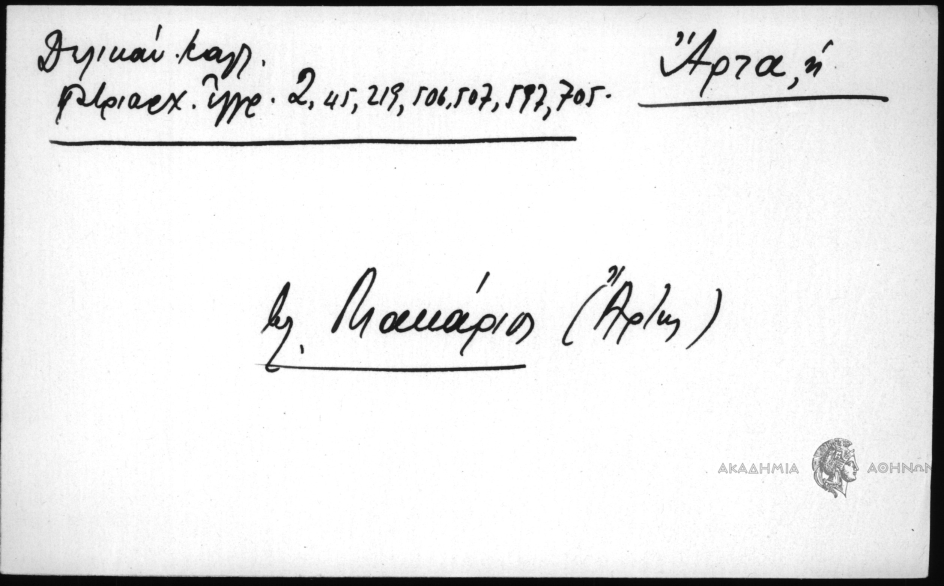 Δελικάν. Καλλ.
Πατριαρχ. Ἔγγρ. 2, 45, 219, 506, 507, 597, 705.
Ἄρτα, ἡ
βλ. Μακάριος (Ἄρτης)
ΑΚΑΔΗΜΙΑ ΑΘΗΝΩΝ